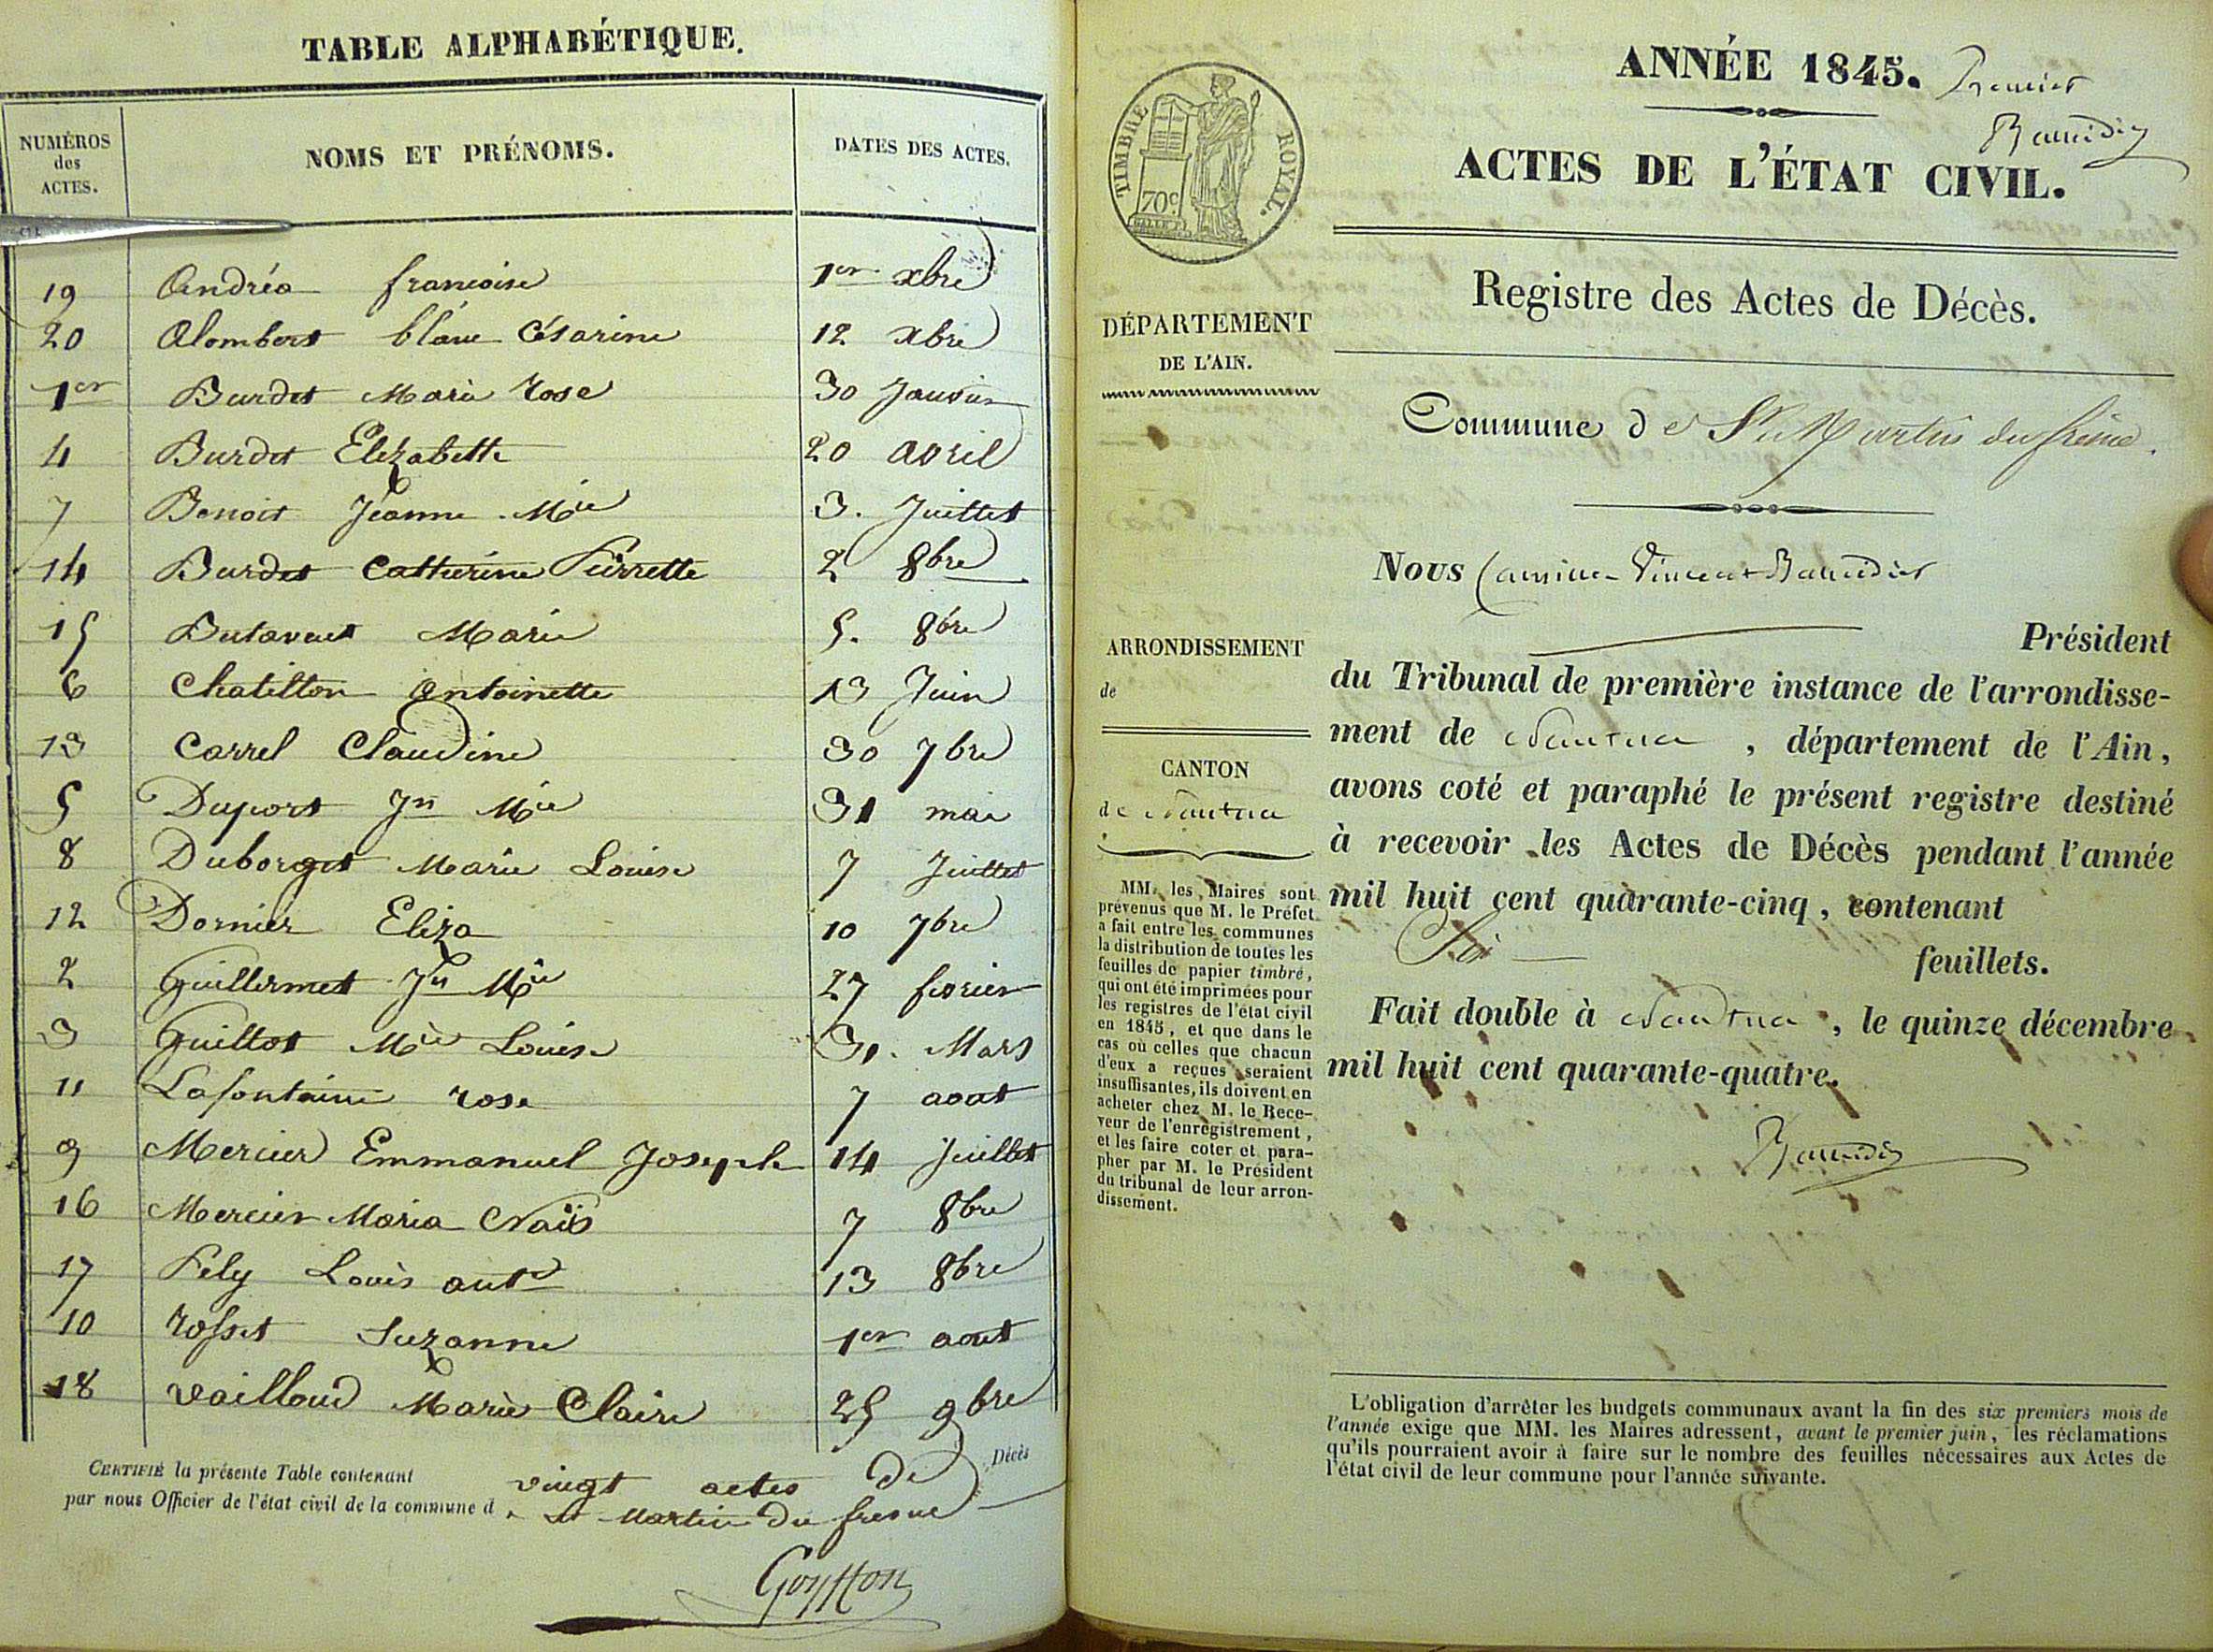 TABLE ALPHABÉTIQUE.
NUMÉROS des ACTES. NOMS ET PRÉNOMS. DATES DES ACTES.
19 Andréa francoise 1er xbre
20 Alombert blanc Césarine 12 xbre
1er Burdet Marie Rose 30 Janvier
4 Burdet Elizabette 20 avril
7 Benoit Jeanne Mie 3. Juillet
14 Burdet Catherine Pierrette 2 8bre
15 Marie 5. 8bre
6 Chatillon Antoinette 13 Juin
13 Carrel Claudine 30 7bre
5 Duport Jn Mie 31 mai
8 Duborget Marie Louise 7 Juillet
12 Dornier Eliza 10 7bre
2 Guillermet Jn Mie 27 fevrier
3 Guillot Mie Louise 31. Mars
11 Lafontaine rose 7 aout
9 Mercier Emmanuel Joseph 14 Juillet
16 Mercier Maria Naïs 7 8bre
17 Pely Louis antne 13 8bre
10 Rosset Suzanne 1er aout
18 vailloud Marie Claire 25 9bre
CERTIFIÉ la présente Table contenant vingt actes de Décès
par nous Officier de l'état civil de la commune de St Martin du fresne
Goyffon
ANNÉE 1845. Premier
ACTES DE L'ÉTAT CIVIL.
TIMBRE ROYAL.
70c
Registre des Actes de Décès.
DÉPARTEMENT
DE L'AIN.
Commune de St Martin du fresne.
Nous Vincent
Président
du Tribunal de première instance de l'arrondisse-
ment de Nantua, département de l'Ain,
avons coté et paraphé le présent registre destiné
à recevoir les Actes de Décès pendant l'année
mil huit cent quarante-cinq, contenant
Six feuillets.
Fait double à Nantua, le quinze décembre
mil huit cent quarante-quatre.
ARRONDISSEMENT
de
CANTON
de Nantua
MM. les Maires sont
prévenus que M. le Préfet
a fait entre les communes
la distribution de toutes les
feuilles de papier timbré,
qui ont été imprimées pour
les registres de l'état civil
en 1845, et que dans le
cas où celles que chacun
d'eux a reçues seraient
insuffisantes, ils doivent en
acheter chez M. le Rece-
veur de l'enregistrement,
et les faire coter et para-
pher par M. le Président
du tribunal de leur arron-
dissement.
L'obligation d'arrêter les budgets communaux avant la fin des six premiers mois de
l'année exige que MM. les Maires adressent, avant le premier juin, les réclamations
qu'ils pourraient avoir à faire sur le nombre des feuilles nécessaires aux Actes de
l'état civil de leur commune pour l'année suivante.